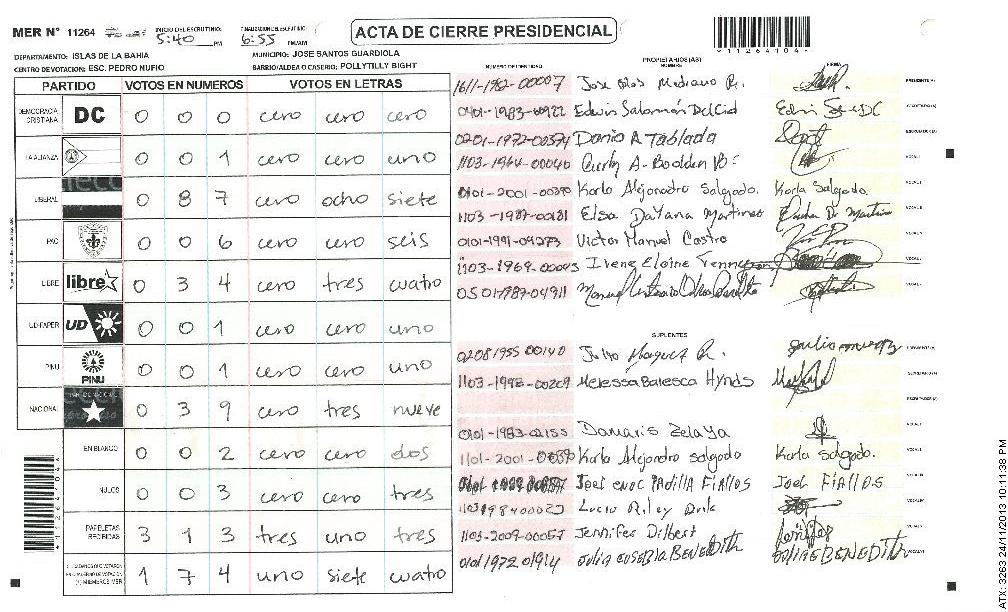 MER N° 11264 INICIO DEL ESCRUTINIO: 5:40 PM FINALIZACION DEL ESCRUTINIO: 6:55 PM/AM ACTA DE CIERRE PRESIDENCIAL 11264104
DEPARTAMENTO: ISLAS DE LA BAHIA MUNICIPIO: JOSE SANTOS GUARDIOLA
CENTRO DE VOTACION: ESC. PEDRO NUFIO BARRIO/ALDEA O CASERIO: POLLYTILLY BIGHT
PARTIDO VOTOS EN NUMEROS VOTOS EN LETRAS
DEMOCRACIA CRISTIANA DC 0 0 0 cero cero cero
LA ALIANZA 0 0 1 cero cero uno
LIBERAL 0 8 7 cero ocho siete
PAC 0 0 6 cero cero seis
LIBRE libre 0 3 4 cero tres cuatro
UD-FAPER UD 0 0 1 cero cero uno
PINU PINU 0 0 1 cero cero uno
NACIONAL 0 3 9 cero tres nueve
EN BLANCO 0 0 2 cero cero dos
NULOS 0 0 3 cero cero tres
PAPELETAS RECIBIDAS 3 1 3 tres uno tres
1 7 4 uno siete cuatro
NUMERO DE IDENTIDAD PROPIETARIOS(AS) NOMBRE FIRMA
1611-1982-00007 Jose Medrano R.
0401-1983-00922 Edwin Salomón Del Cid
0201-1972-00374 Dario A Tablada
1103-1964-00040
0101-2001-00390 Karla Alejandra Salgado. Karla Salgado.
1103-1987-00181 Elsa Dayana Martinez
0101-1991-04273 Victor Manuel Castro
1103-1969-00043 Irene Elaine Tennyson
0501-1987-04911
SUPLENTES
0208 1955 00140 Julio Marquez R.
1103-1998-00209 Meressa Balesca Hynds
0101-1983-02155 Damaris Zelaya
1101-2001-00390 Karla Alejandra Salgado Karla Salgado.
Joel enoc Padilla Fiallos Joel Fiallos
Lucio Riley
1103-2009-00057 Jennifer Dilbert Jennifer
0101 1972 01914 Julia Eusebia Benedith
ATX: 3263 24/11/2013 10:11:38 PM